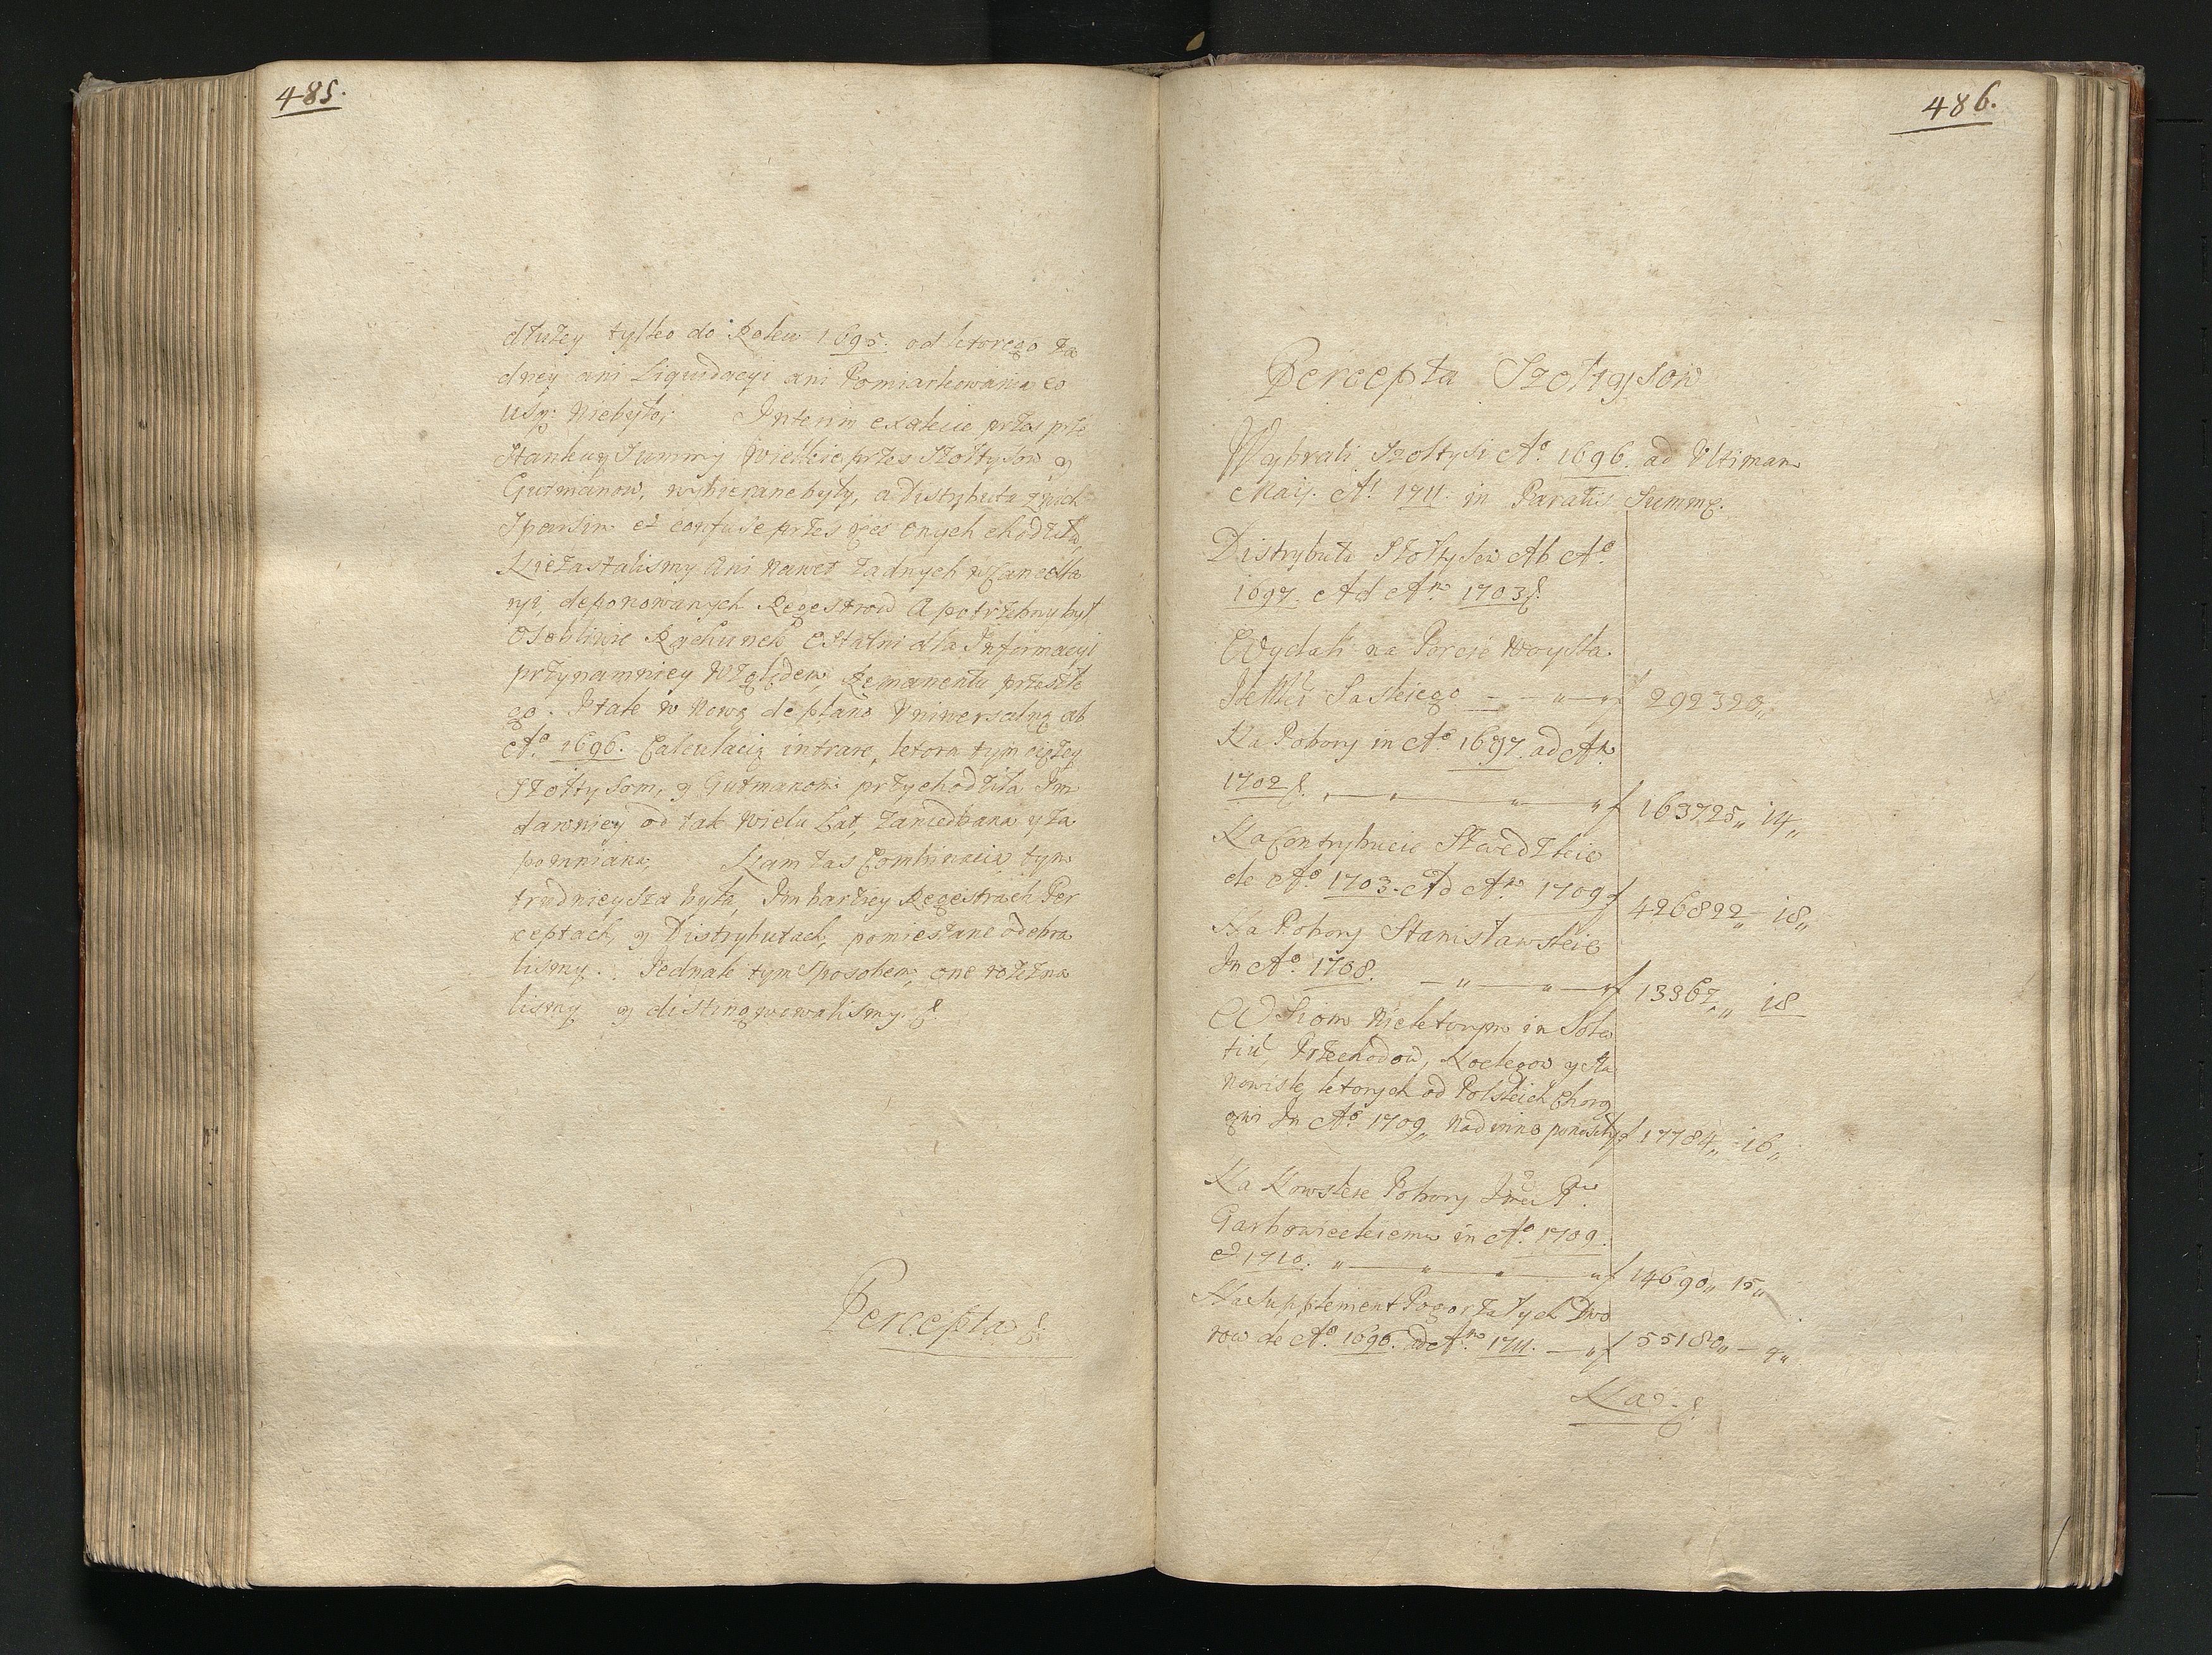 485.
dłużey tylko do Roku 1695. od ktorego ża
dney ani Liquidacyi ani Pomiarkowania eo
usq; Niebyło; Interim exakcie przes prze
Summy Wielkie przes Szołtysow y
Gutmanow, wybierane byly, a Distrybuta z nich
Sparsim et confuse przes ręce onych chodziła
Niezastalismy Ani Nawet Zadnych w Cancella
ryi, deponowanych Regestrow A potrzebny był
Osobliwie Rachunek Ostatni dla Informacyi
przynamniey Względem, Remanentu przeszłe
go. Jtak w Nową de plano Vniwersalną ab
Aº 1696. Calculacią intrare, ktora tym cięzey
Szołtysom, y Gutmanom przychodziła Im
dawniey od tak wielu Lat, zaniedbana y za
pomniana, Nam zas Combinacia tym
trudnieysza była, Im barziey Regestrach Per
ceptach, y Distrybutach, pomieszane odebra
lismy. Jednak tym Sposobem, one rozezna
lismy y distingwowalismy.
Percepta
486.
Percepta Szołtysow
Wybrali Szołtysi Aº 1696. ad Ultimam
Maij. A! 1711. in Paratis Summę.
Distrybuta Szołtysow Ab Aº
1697. Ad Aⁿ 1703
Wydali na Porcie Woyska
Saskiego — — " — " f 292320,,
Na Pobory in Aº 1697. ad Aⁿ
1702 " — " f 163725,, 14,,
Na Contrybucie Szwedzkie
de Aº 1703. Ad Aⁿ 1709 f 426822,, 18,,
Na Pobory Stanisławskie
In Aº 1708. — " — " — " f 13367,, 18
Wsiom Niektorym in Sola
tiũ, Przechodow, Noclegow y Sta
nowisk, ktorych od Polskich Chorą
gwi In Aº 1709,, nad inne ponosily f 17784,, 16,,
Na Kowskie Pobory P.
Garbowieckiemu in Aº 1709.
et 1710. " — " — " — " f 14690,, 15,,
Na Supplement Pogorzałych Dwo
row de Aº 1696. ad Aⁿ 1711. — " f 55180,, — 4"
Na